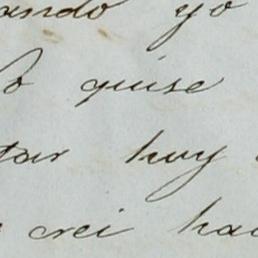 ando yo
quise
tar huy
crei ha